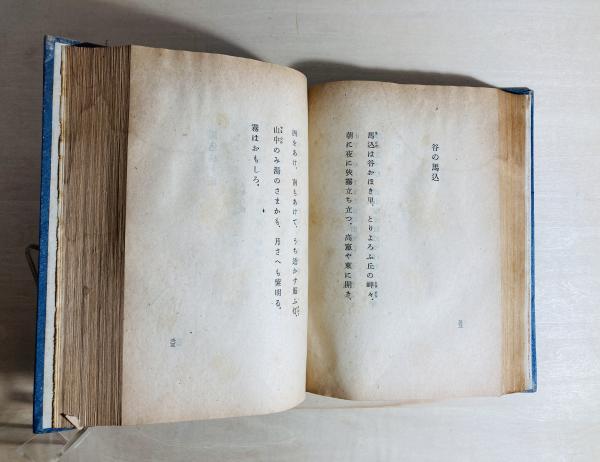 谷の馬込
馬込は谷おほき里、とりよろふ丘の岬々、
朝に夜に狹霧立ち立つ。高窓や東に開き、
西をあけ、南もあけて、うち透かす
山中のみ湯のさまかも、月さへも
霧はおもしろ。